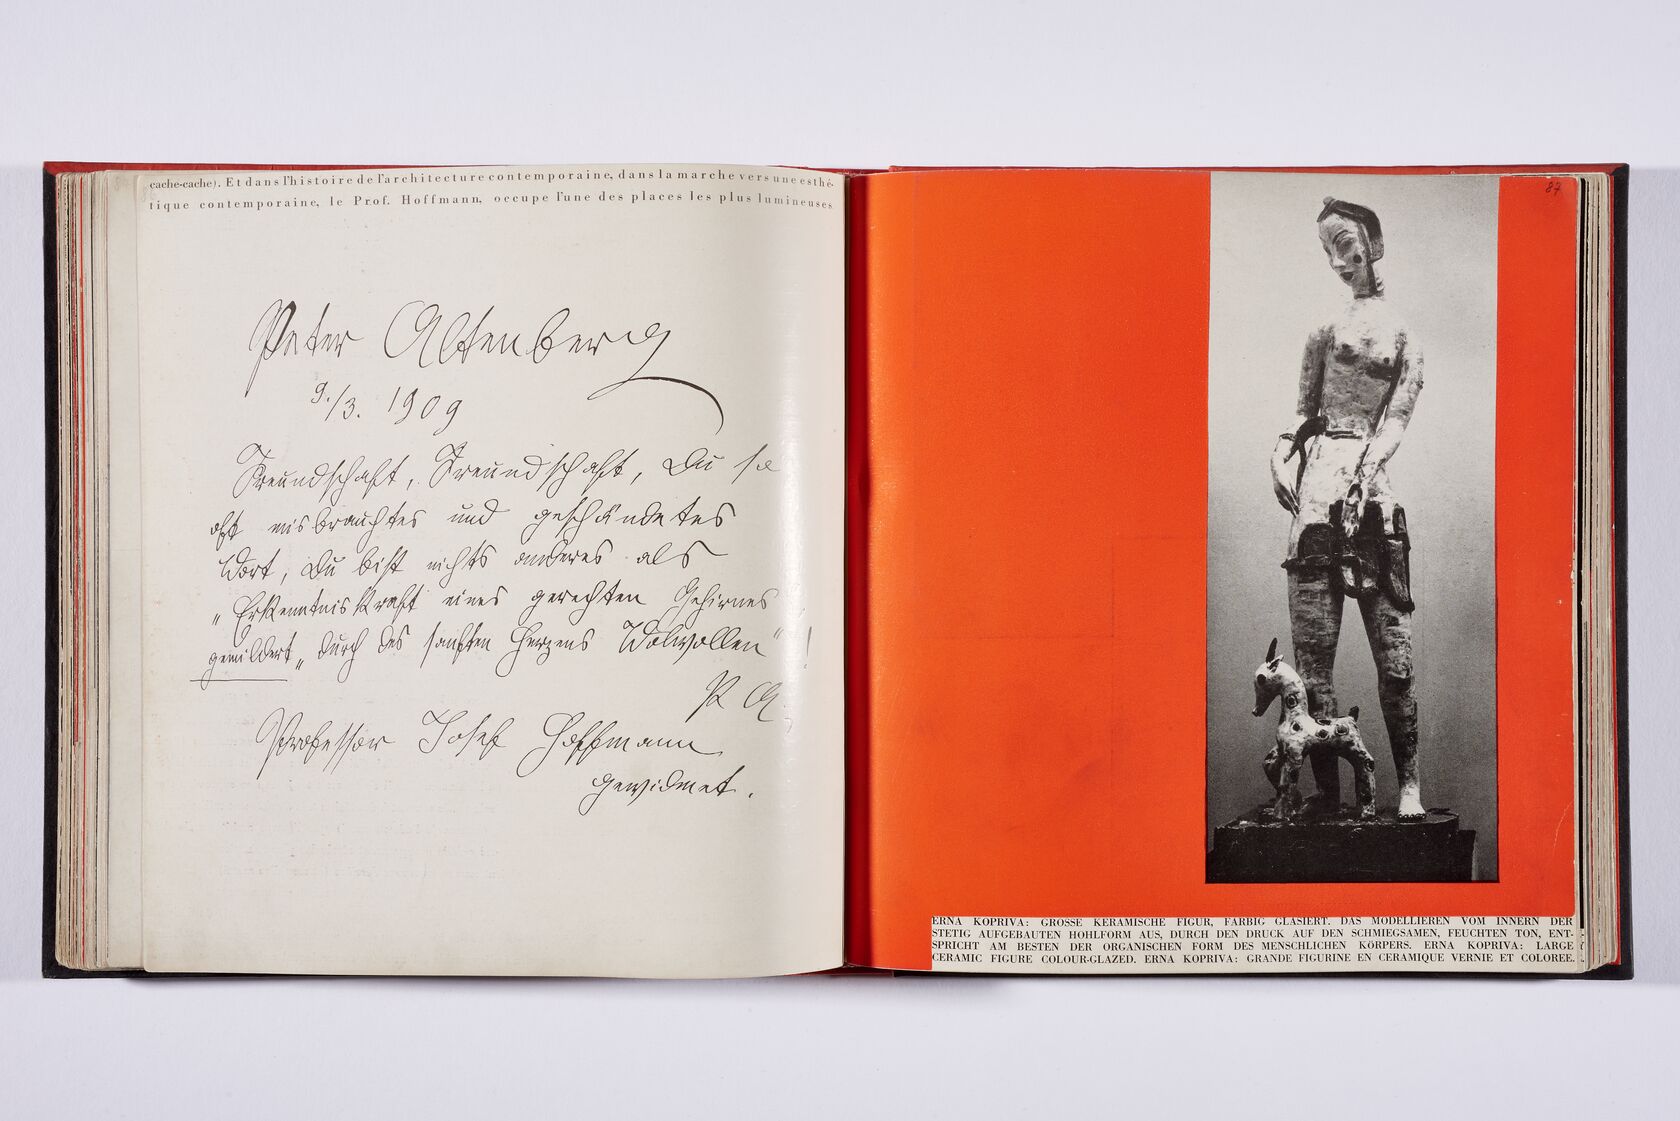 cache-cache). Et dans l'histoire de l'architecture contemporaine, dans la marche vers une esthé-
tique contemporaine, le Prof. Hoffmann, occupe l'une des places les plus lumineuses
Peter Altenberg
9./3. 1909
Freundschaft, Freundschaft, Du so
oft misbrauchtes und geschändetes
Wort, Du bist nichts anderes als
„Erkenntniskraft eines gerechten Gehirnes
gemildert„ durch des sanften Herzens Wolwollen“!
P A
Professor Josef Hoffmann
gewidmet.
87
ERNA KOPRIVA: GROSSE KERAMISCHE FIGUR, FARBIG GLASIERT. DAS MODELLIEREN VOM INNERN DER
STETIG AUFGEBAUTEN HOHLFORM AUS, DURCH DEN DRUCK AUF DEN SCHMIEGSAMEN, FEUCHTEN TON, ENT-
SPRICHT AM BESTEN DER ORGANISCHEN FORM DES MENSCHLICHEN KÖRPERS. ERNA KOPRIVA: LARGE
CERAMIC FIGURE COLOUR-GLAZED. ERNA KOPRIVA: GRANDE FIGURINE EN CERAMIQUE VERNIE ET COLOREE.